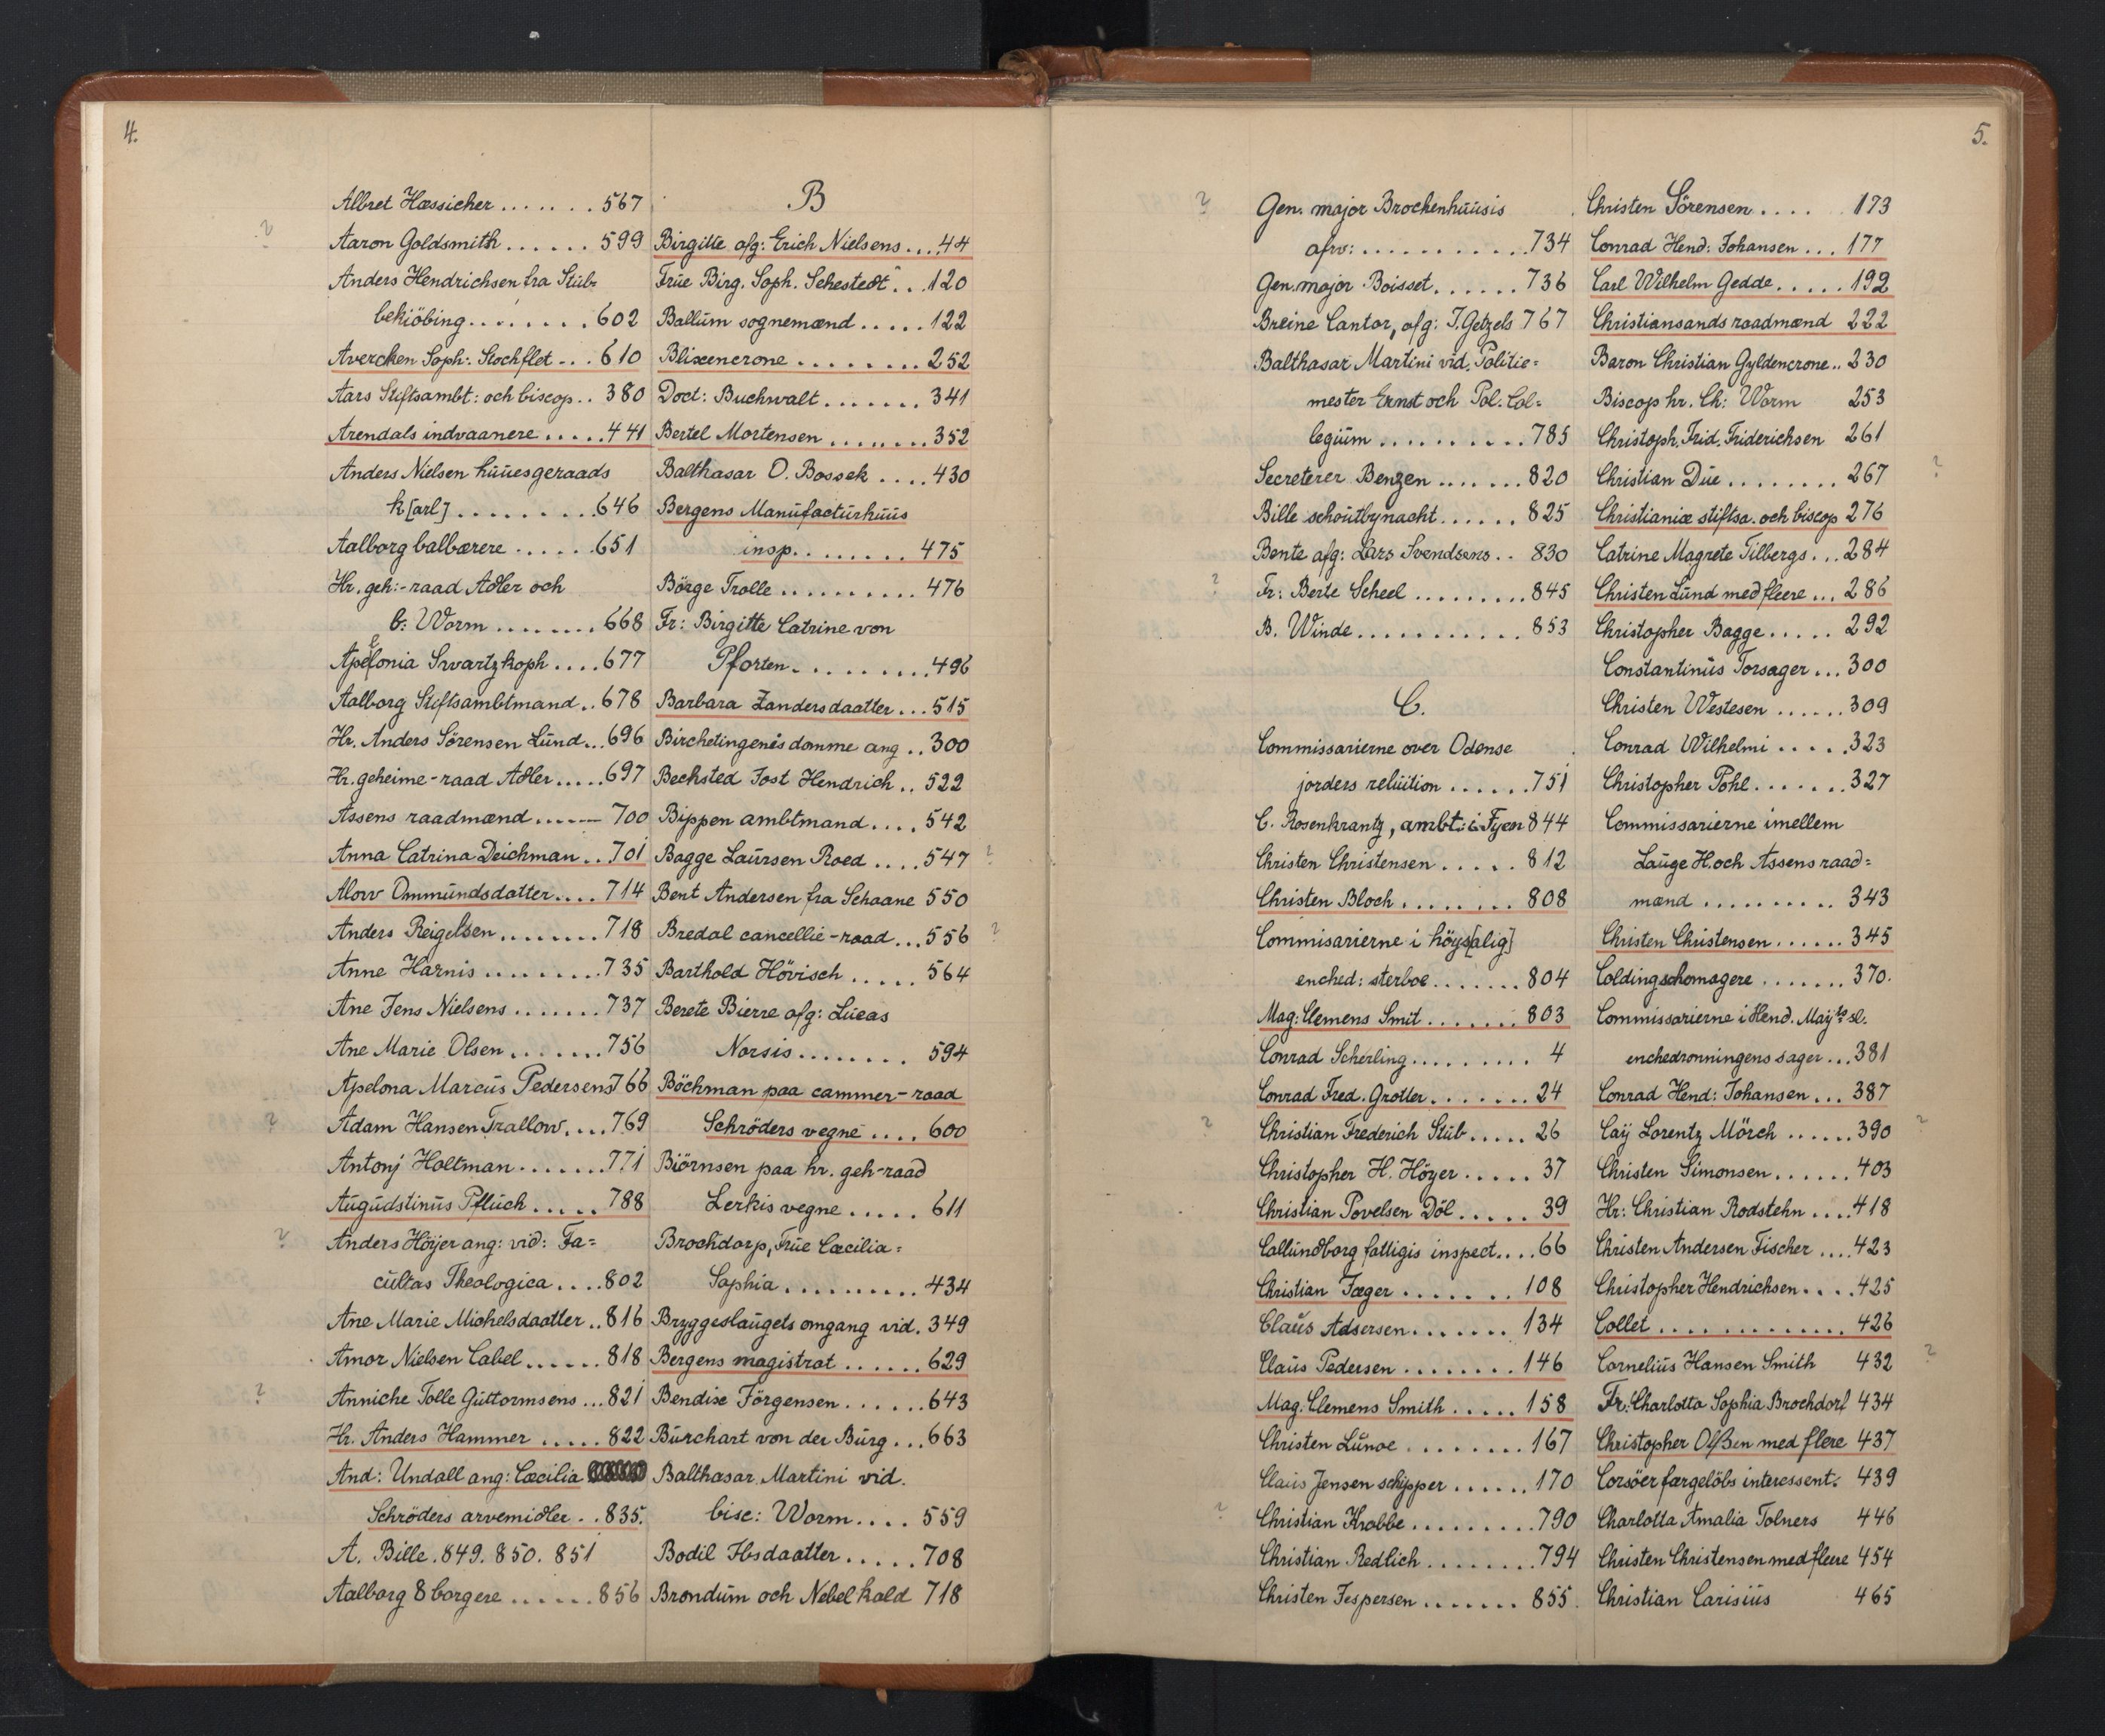 4.
Albret Hæssicher ....... 567
? Aaron Goldsmith ...... 599
Anders Hendrichsen fra Stub-
bekiöbing ........ 602
Avercken Soph: Stochflet ... 610
Aars Stiftsambt: och biscop .. 380
Arendals indvaanere ..... 441
Anders Nielsen huuesgeraads
k[arl] ......... 646
Aalborg balbærere ...... 651
Hr. geh:-raad Adler och
b: Worm ........ 668
Apelonia Swartzkoph .... 677
Aalborg Stiftsambtmand .. 678
Hr. Anders Sörensen Lund ... 696
Hr. geheime-raad Adler ..... 697
Assens raadmænd ...... 700
Anna Catrina Deichman .. 701
Alow Ommundsdatter .... 714
Anders Reigelsen ........ 718
Anne Harnis ......... 735
Ane Jens Nielsens ....... 737
Ane Marie Olsen ....... 756
Apelona Marcus Pedersens 766
? Adam Hansen Trallow .... 769
Antonj Holtman ....... 771
Augudstinus Pfluch ..... 788
? Anders Höyer ang: vid: Fa=
cultas Theologica .... 802
Ane Marie Michelsdaatter .. 816
Amor Nielsen Cabel ...... 818
? Anniche Tolle Guttormsens ... 821
Hr. Anders Hammer ..... 822
And: Undall ang: Cæcilia
Schröders arvemidler .. 835.
A. Bille. 849. 850. 851
Aalborg 8 borgere ...... 856
B
Birgitte afg: Erich Nielsens ... 44
Frue Birg. Soph. Sehestedt .. 120
Ballum sognemænd ..... 122
Blixencrone ......... 252
Doct: Buchwalt ....... 341
Bertel Mortensen ........ 352
Balthasar O. Bossek .... 430
Bergens Manufacturhuus
insp. ........ 475
Börge Trolle .......... 476
Fr: Birgitte Catrine von
Pforten .......... 496
Barbara Zandersdaatter ... 515
Birchetingenis domme ang .. 300
Bechsted Jost Hendrich .. 522
Bippen ambtmand .... 542
Bagge Laursen Roed .... 547 ?
Bent Andersen fra Schaane 550
Bredal cancellie-raad ... 556 ?
Barthold Hövisch ..... 564
Berete Bierre afg: Lucas
Norsis ........ 594
Böchman paa cammer-raad
Schröders vegne .... 600
Biörnsen paa hr. geh-raad
Lerkis vegne ..... 611
Brochdorp, Frue Cæcilia=
Sophia .......... 434
Bryggeslaugets omgang vid. 349
Bergens magistrat ...... 629
Bendixe Jörgensen ...... 643
Burchart von der Burg ... 663
Balthasar Martini vid.
bisc: Worm .... 559
Bodil Ibsdaatter ..... 708
Brondum och Nebel kald 718
5.
? Gen. major Brockenhuusis
afrv: ........... 734
Gen. major Boisset ...... 736
Breine Cantor, afg: J. Getzels 767
Balthasar Martini vid. Politie=
mester Ernst och Pol. Col=
legium .......... 785
Secreterer Benzen ....... 820
Bille schoutbynacht ...... 825
Bente afg: Lars Svendsens .. 830
? Fr: Berte Scheel ......... 845
B. Winde ........... 853
C.
Commissarierne over Odense
jorders reluition ...... 751
C. Rosenkrantz, ambt: i Fyen 844
Christen Christensen ..... 812
Christen Bloch ........ 808
Commisarierne i höys[alig]
enched: sterboe ....... 804
Mag: Clemens Smit ....... 803
Conrad Scherling ......... 4
Conrad Fred. Grotter ....... 24
? Christian Frederich Stub ..... 26
Christopher H. Höyer ..... 37
Christian Povelsen Döl ..... 39
Callundborg fattigis inspect .... 66
Christian Fæger ....... 108
Claus Adsersen ....... 134
Claus Pedersen ........ 146
Mag. Clemens Smith ..... 158
Christen Lunoe ........ 167
Claus Jensen schipper ...... 170
? Christian Krabbe ......... 790
Christian Redlich ........ 794
Christen Jespersen ....... 855.
Christen Sörensen .... 173
Conrad Hend: Johansen ... 177
Carl Wilhelm Gedde ..... 192
Christiansands raadmænd 222
Baron Christian Gyldencrone .. 230
Biscop hr. Ch: Worm 253
Christoph. Frid. Friderichsen 261
Christian Due ........ 267 ?
Christianiæ stiftsa. och biscop 276
Catrine Magrete Tilbergs ... 284
Christen Lund med fleere ... 286
Christopher Bagge ..... 292
Constantinus Torsager ... 300
Christen Westesen ...... 309
Conrad Wilhelmi ..... 323
Christopher Pohl ....... 327
Commissarierne imellem
Lauge H. och Assens raad=
mænd .......... 343
Christen Christensen ...... 345
Colding schomagere ....... 370.
Commissarierne i Hend. Mayts sl.
enchedronningens sager ... 381
Conrad Hend: Johansen ... 387
Caÿ Lorentz Mörch ...... 390 ?
Christen Simonsen ...... 403
Hr: Christian Rodstehn .... 418
Christen Andersen Fischer .... 423
Christopher Hendrichsen .... 425
Collet ............. 426
Cornelius Hansen Smith 432 ?
Fr: Charlotta Sophia Brochdorf 434
Christopher Olssen med flere 437
Corsöer færgelöbs interessent: 439
Charlotta Amalia Tolners 446
Christen Christensen med fleere 454
Christian Carisius 465